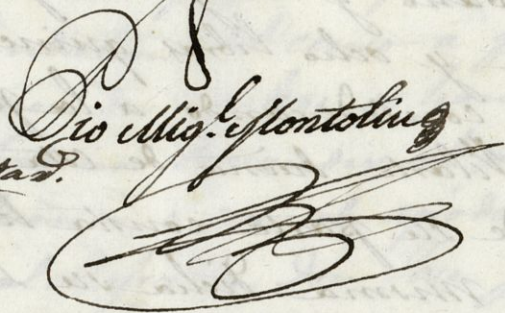 Pio Mig.l Montoliu